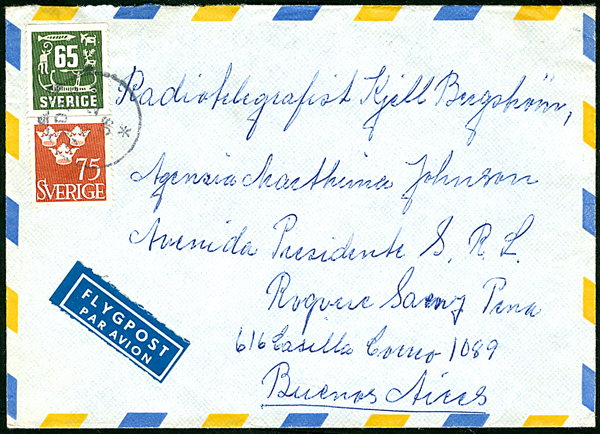 65
SVERIGE
75
SVERIGE
Radiotelegrafist Kjell Bergström,
Agensia Maethima Johnson
Avenida Presidente S. R. L.
Roquere Saenz Pena
616 Casilla Correo 1089
Buenos Aires
FLYGPOST
PAR AVION